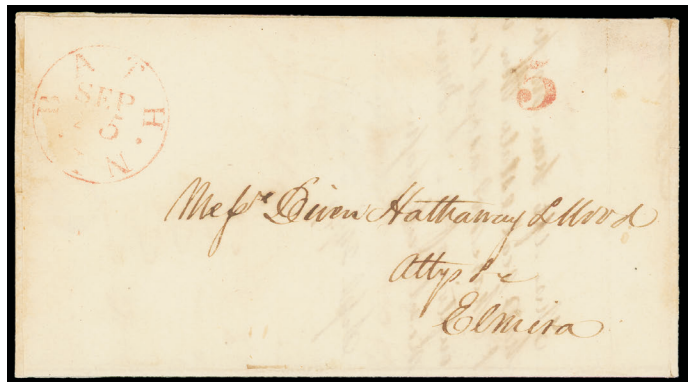 BATH
SEP
5
N.Y.
5
Messrs Diven Hathaway & Wood
Attys &c
Elmira